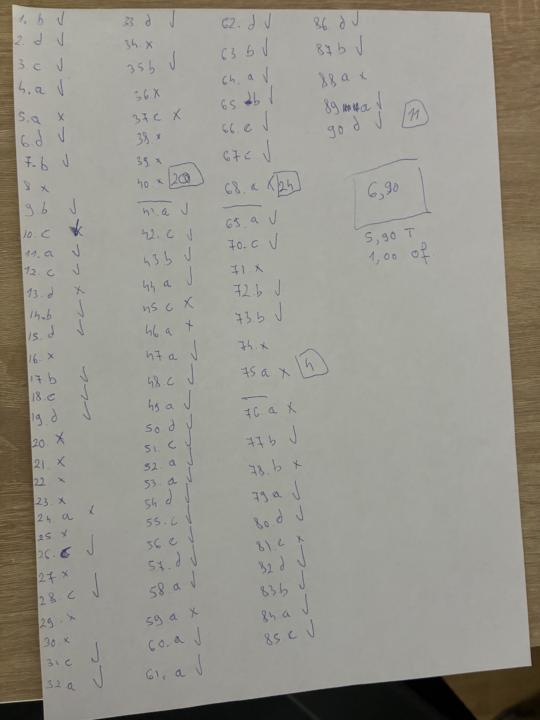 1. b ✓
2. d ✓
3. c ✓
4. a ✓
5. a x
6. d ✓
7. b ✓
8 x
9. b ✓
10. c x
11. a ✓
12. c ✓
13. d x
14. b ✓
15. d ✓
16. x
17. b ✓
18. c ✓
19. d ✓
20. x
21. x
22. x
23. x
24. a x
25. x
26. c ✓
27. x
28. c ✓
29. x
30. x
31. c ✓
32. a ✓
33. d ✓
34. x
35. b ✓
36. x
37. c x
38. x
39. x
40. x 20
41. a ✓
42. c ✓
43. b ✓
44. a ✓
45. c x
46. a x
47. a ✓
48. c ✓
49. a ✓
50. d ✓
51. c ✓
52. a ✓
53. a ✓
54. d ✓
55. c ✓
56. c ✓
57. d ✓
58. a ✓
59. a x
60. a ✓
61. a ✓
62. d ✓
63. b ✓
64. a ✓
65. b ✓
66. c ✓
67. c ✓
68. a x 24
69. a ✓
70. c ✓
71. x
72. b ✓
73. b ✓
74. x
75. a x 4
76. a x
77. b ✓
78. b x
79. a ✓
80. d ✓
81. c x
82. d ✓
83. b ✓
84. a ✓
85. c ✓
86. d ✓
87. b ✓
88. a x
89. a ✓
90. d ✓ 11
6,90
5,90 T
1,00 of